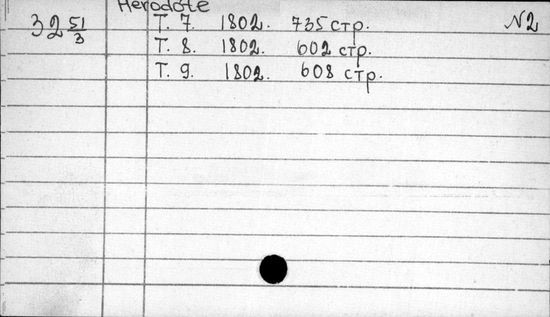 Herodote
32 51/3 Т. 7. 1802. 735 стр. N2
Т. 8. 1802. 602 стр.
Т. 9. 1802. 608 стр.